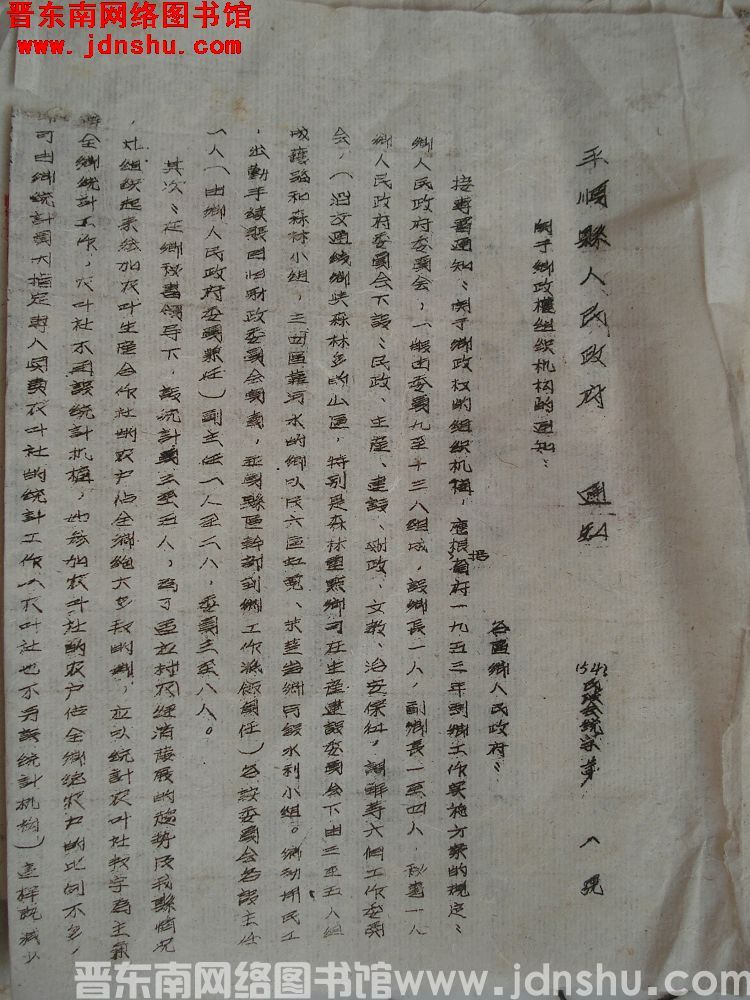 晋东南网络图书馆
www.jdnshu.com
平順縣人民政府 通知
1542 民政会统字第 八 號
関于鄉政權組织机构的通知：
各區鄉人民政府：
接專署通知：関于鄉政权的组织机構，應根据省府一九五三年劃鄉工作実施方案的規定：
鄉人民政府委員会，一般由委員九至十三人組成，設鄉長一人，副鄉長一至四人，秘書一人
鄉人民政府委員会下設：民政、生産、建設、財政、文教、治安保衛，調解等六個工作委員
会，（沿交通线鄉與森林多的山區，特别是森林重點鄉可在生産建設委員会下由三至五人組
成護路和森林小组，三四區薩河水的鄉以及六區虹霓、等鄉可設水利小组。鄉動用民工
，出勤手續張因財政委員会負責，並縣區幹部到鄉工作派飯任）各該委員会各設主任
一人（由鄉人民政府委員兼任）副主任一人至二人，委員三至八人。
其次：在鄉秘書領导下，設統計員三至五人，為了适应村农经济發展的趋势及我縣情况
，组织起来参加农叶生産合作社的农户佔全鄉绝大多数的鄉，应以統計农叶社数字為主
全鄉統計工作，农叶社不再設統計机構，如参加农叶社的农户佔全鄉總农户的比例不多，
即可由鄉統計員大指定專人負責农叶社的統計工作（农叶社也不另設統計机構）這样既减少
晋东南网络图书馆www.jdnshu.com